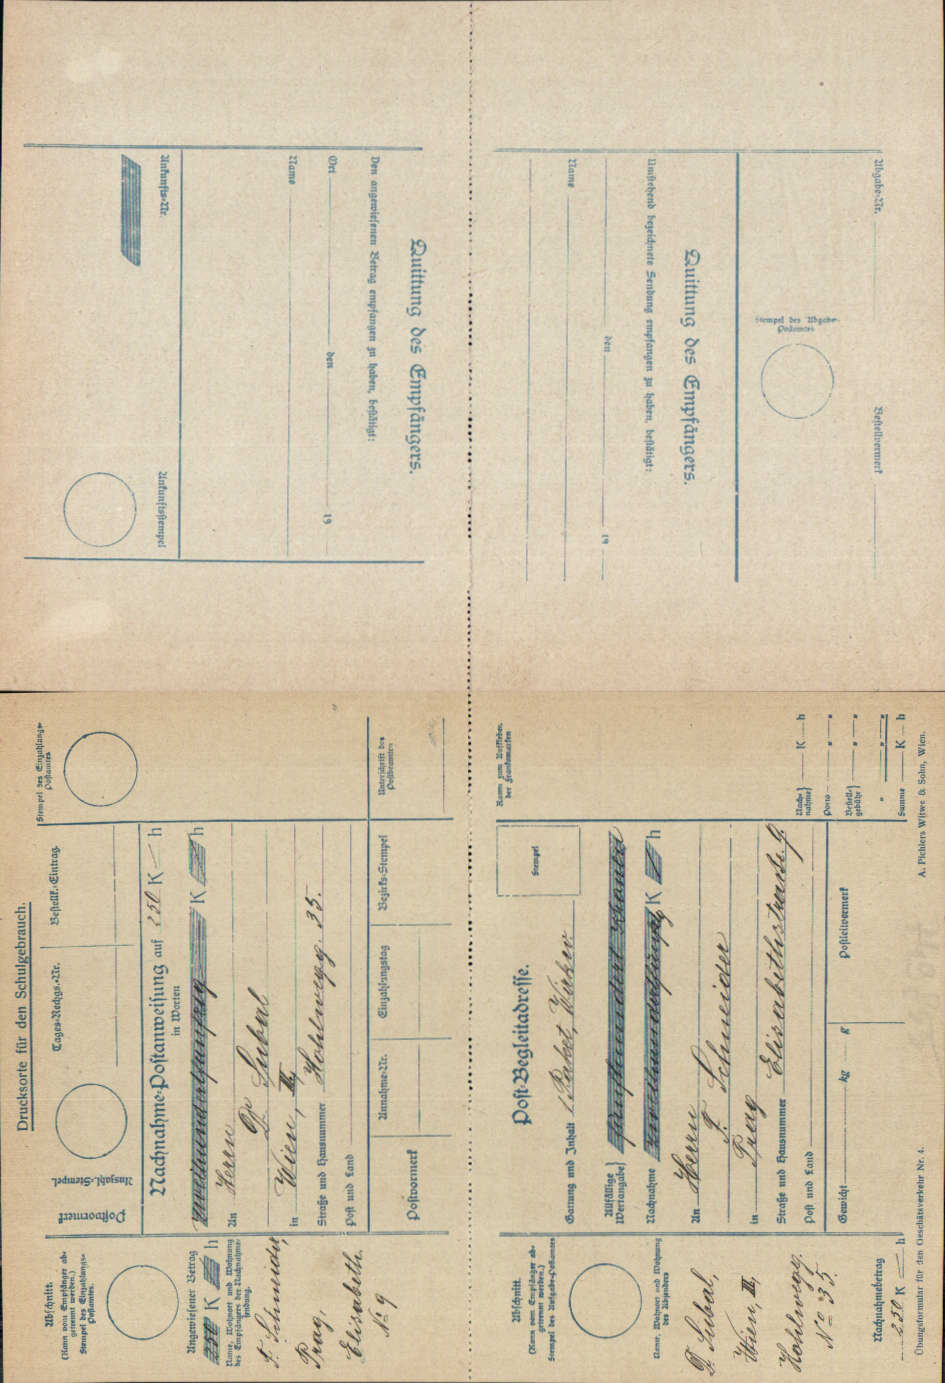 Drucksorte für den Schulgebrauch.
Abschnitt.
(Kann vom Empfänger ab-
getrennt werden.)
Stempel des Einzahlungs-
Postamtes.
Angewiesener Betrag
250 K h
Name, Wohnort und Wohnung
des Empfängers der Nachnahme-
sendung.
F. Schneider,
Prag,
Elisabeth.
No 9
Postvormerk
Auszahl.-Stempel.
Tages-Rechgs.-Nr.
Bestellk.-Eintrag.
Stempel des Einzahlungs-
Postamtes
Nachnahme-Postanweisung auf 250 K — h
in Worten
zweihundertfünfzig K — h
An Herrn
in Wien, III,
Straße und Hausnummer Hohlwegg. 35.
Post und Land
Postvormerk
Annahme-Nr.
Einzahlungstag
Bezirks-Stempel
Unterschrift des
Postbeamten
Abschnitt.
(Kann vom Empfänger ab-
getrennt werden.)
Stempel des Aufgabe-Postamtes
Name, Wohnort und Wohnung
des Absenders
Wien, III,
Hohlwegg.
No 35.
Nachnahmebetrag
250 K — h
Post-Begleitadresse.
Stempel
Raum zum Aufkleben
der Frankomarken
Gattung und Inhalt 1 Paket,
Allfällige
Wertangabe} fünfhundert Kronen
Nachnahme zweihundertfünfzig K — h
An Herrn
F. Schneider
in Prag
Straße und Hausnummer Elisabethstrasse 9
Post und Land
Gewicht kg g
Postleitvermerk
Nach-
nahme} K h
Porto " "
Bestell-
gebühr} " "
" " "
Summe K h
Übungsformular für den Geschäftsverkehr Nr. 4.
A. Pichlers Witwe & Sohn, Wien.
Quittung des Empfängers.
Den angewiesenen Betrag empfangen zu haben, bestätigt:
Ort den 19
Name
Ankunfts-Nr.
Ankunftsstempel
Quittung des Empfängers.
Umstehend bezeichnete Sendung empfangen zu haben, bestätigt:
den 19
Name
Abgabe-Nr.
Stempel des Abgabe-
Postamtes
Bestellvermerk